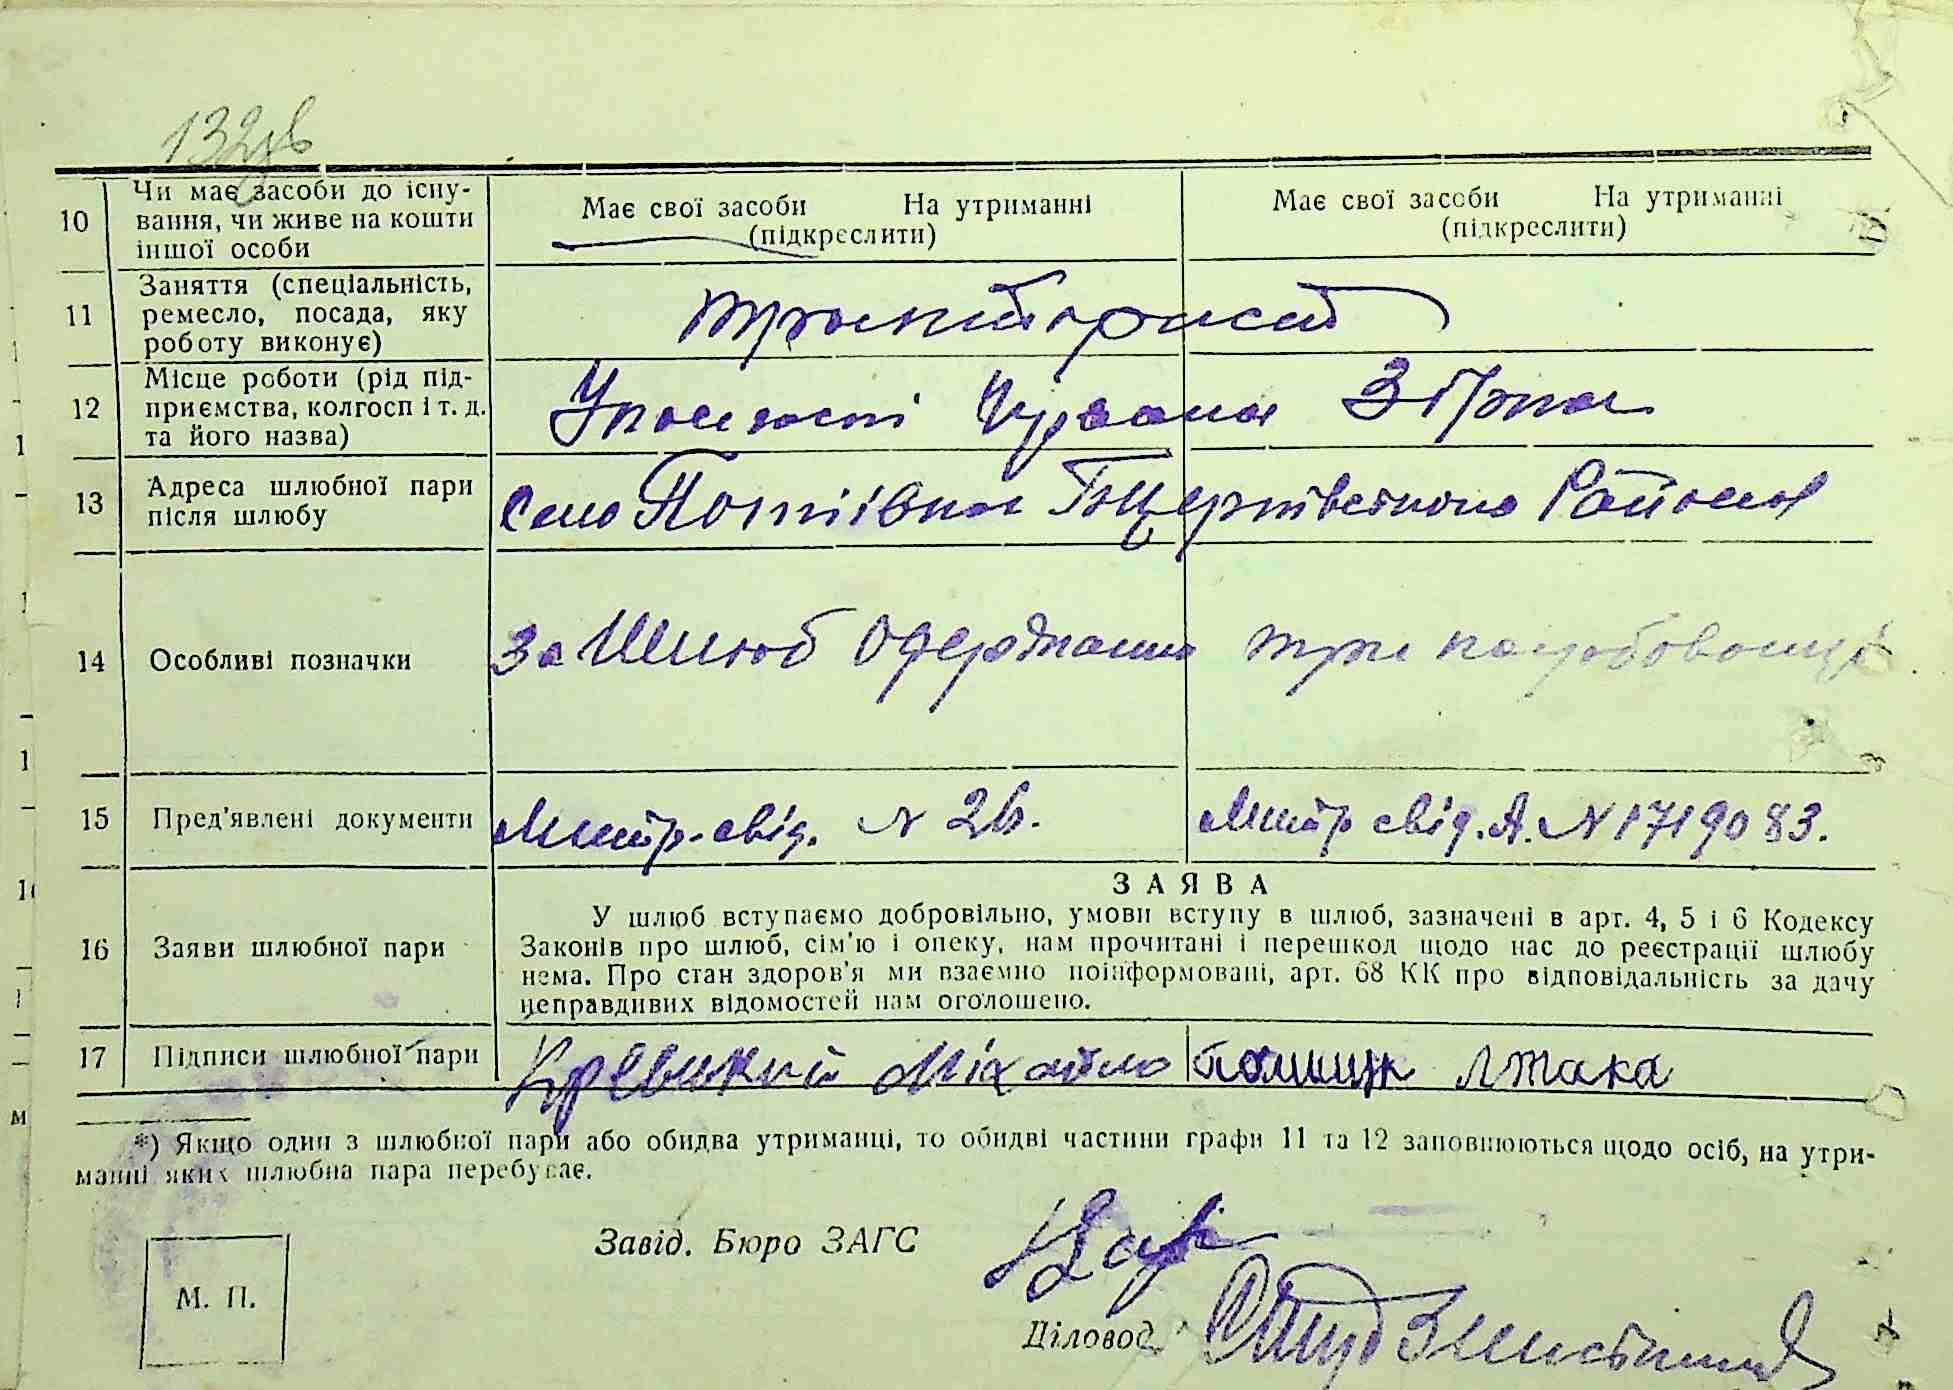 132зв
10 Чи має засоби до існу-
вання, чи живе на кошти
іншої особи
Має свої засоби На утриманні
(підкреслити)
Має свої засоби На утриманні
(підкреслити)
11 Заняття (спеціальність,
ремесло, посада, яку
роботу виконує)
тракторист
12 Місце роботи (рід під-
приємства, колгосп і т. д.
та його назва)
Уколгоспі Червона Зірка
13 Адреса шлюбної пари
після шлюбу
Село Потіївка Білоцерківського Району
14 Особливі позначки
За Шлюб Одержано три карбованці
15 Пред'явлені документи
Метр. свід. № 26.
Метр свід. А. № 1719083.
16 Заяви шлюбної пари
ЗАЯВА
У шлюб вступаємо добровільно, умови вступу в шлюб, зазначені в арт. 4, 5 і 6 Кодексу
Законів про шлюб, сім'ю і опеку, нам прочитані і перешкод щодо нас до реєстрації шлюбу
нема. Про стан здоров'я ми взаємно поінформовані, арт. 68 КК про відповідальність за дачу
неправдивих відомостей нам оголошено.
17 Підписи шлюбної пари
Кревький Міхайло
*) Якщо один з шлюбної пари або обидва утриманці, то обидві частини графи 11 та 12 заповнюються щодо осіб, на утри-
манні яких шлюбна пара перебуває.
Завід. Бюро ЗАГС
М. П.
Діловод